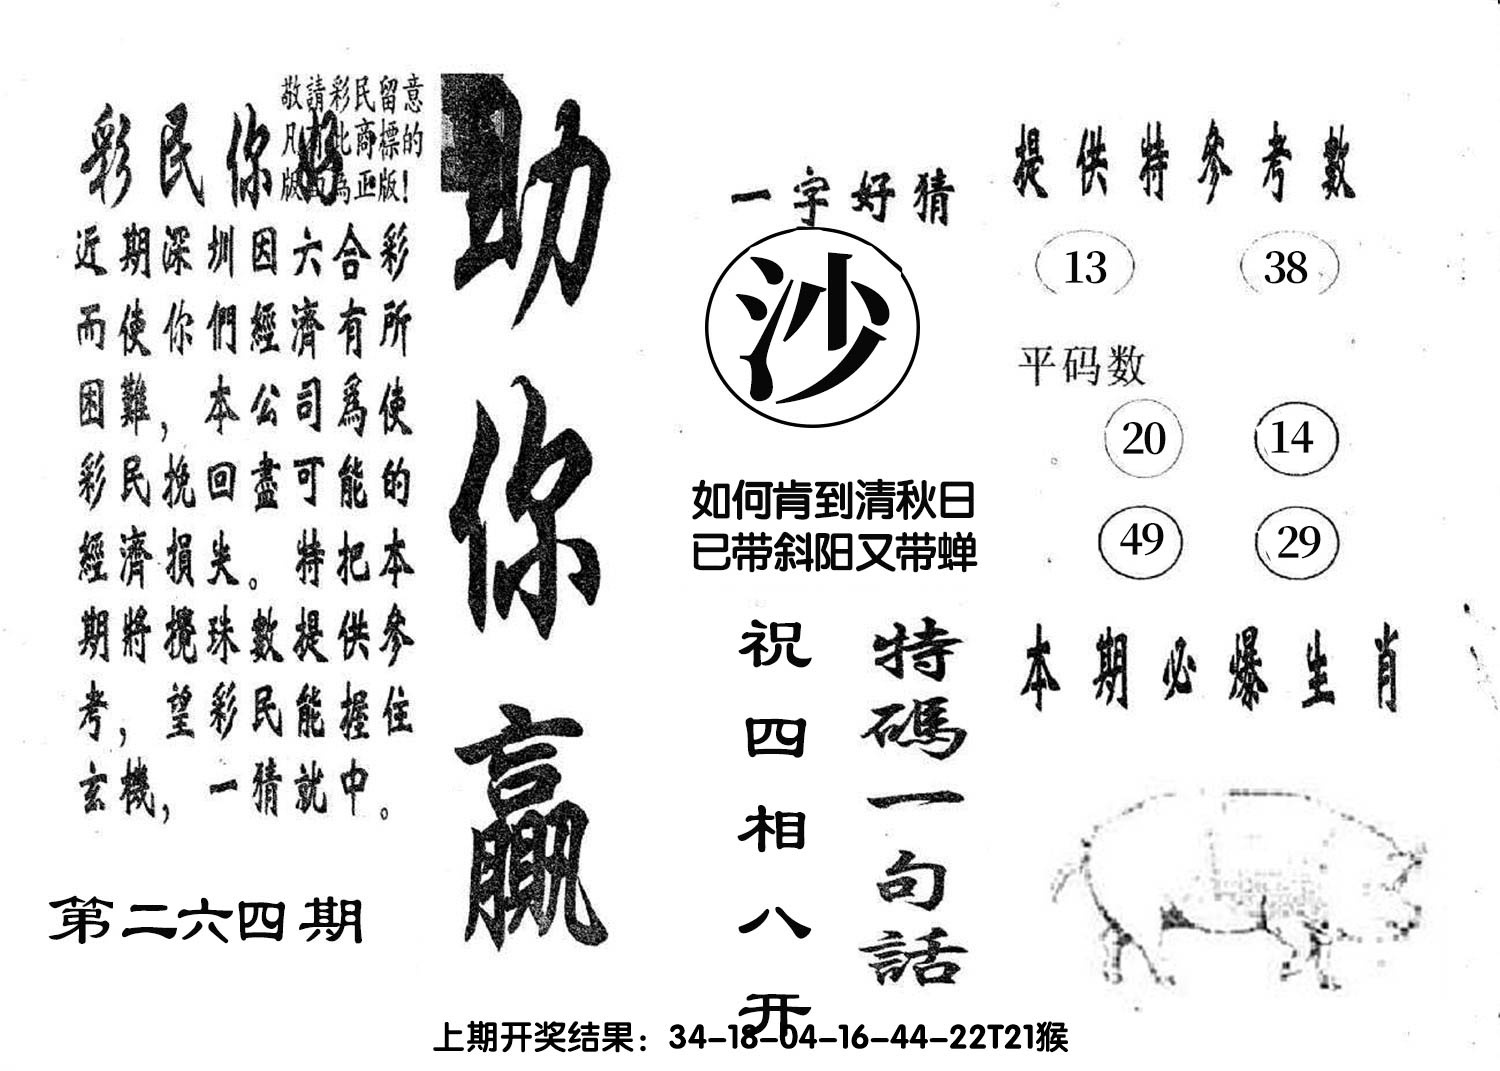 敬請彩民留意
凡有此商標的
版面為正版!
彩民你好
近期深圳因六合彩
而使你們經濟有所
困難，本公司爲使
彩民挽回盡可能的
經濟損失。特把本
期將攪珠數提供參
考，望彩民能握住
玄機，一猜就中。
第二六四期
助你贏
一字好猜
沙
如何肯到清秋日
已带斜阳又带蝉
特碼一句話
祝四相八开
提供特參考數
13 38
平码数
20 14
49 29
本期必爆生肖
上期开奖结果：34-18-04-16-44-22T21猴